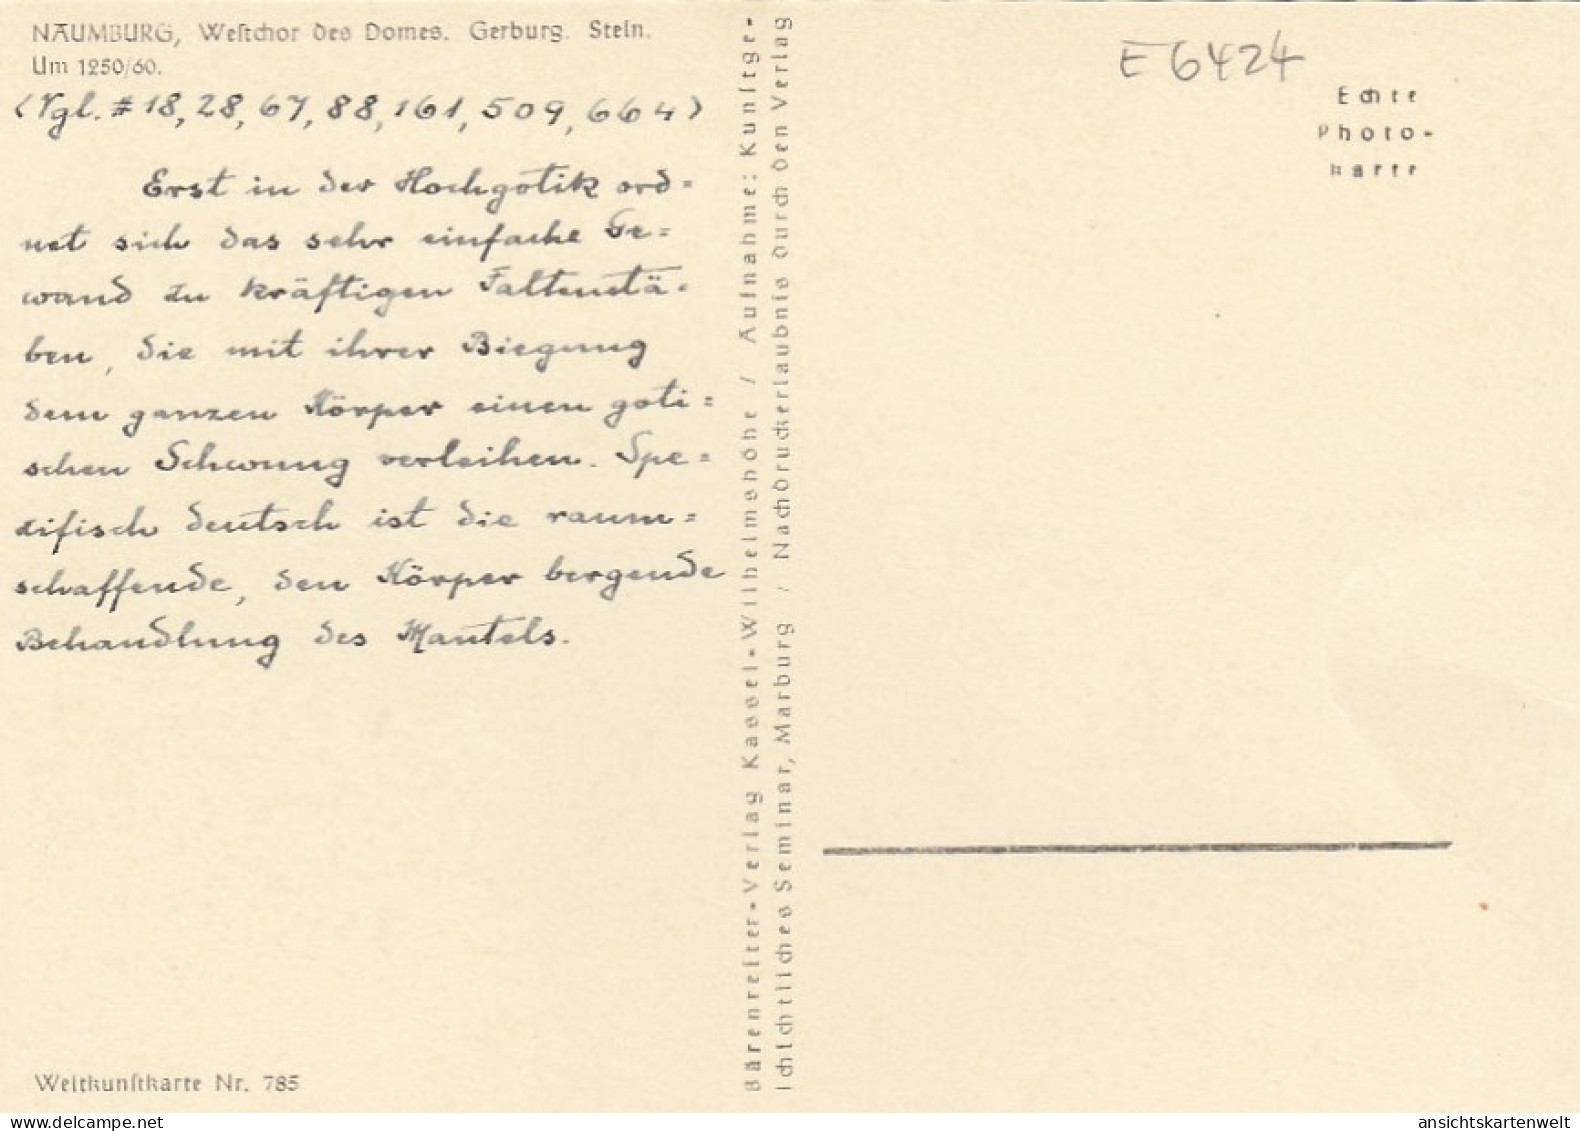 NAUMBURG, Weſtchor des Domes. Gerburg. Stein.
Um 1250/60.
(Vgl. # 18, 28, 67, 88, 161, 509, 664)
Erst in der Hochgotik ord=
net sich das sehr einfache Ge=
wand zu kräftigen Faltenstä-
ben, die mit ihrer Biegung
dem ganzen Körper einen goti=
schen Schwung verleihen. Spe=
zifisch deutsch ist die raum=
schaffende, den Körper bergende
Behandlung des Mantels.
Weltkunſtkarte Nr. 785
Bärenreiter-Verlag Kassel-Wilhelmshöhe / Aufnahme: Kunſtge-
ſchichtliches Seminar, Marburg / Nachdruckerlaubnis durch den Verlag
E 6424
Echte
Photo-
karte
ansichtskartenwelt
delcampe.net